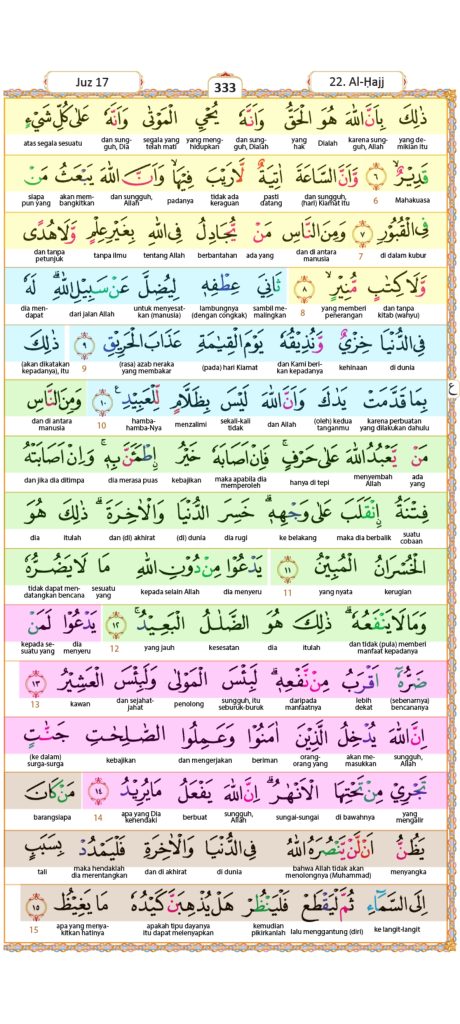 Juz 17
333
22. Al-Ḥajj
ذٰلِكَ بِاَنَّ اللّٰهَ هُوَ الْحَقُّ وَاَنَّهٗ يُحْيِ الْمَوْتٰى وَاَنَّهٗ عَلٰى كُلِّ شَيْءٍ
yang de-mikian itu karena sung-guh, Allah Dialah yang hak dan sung-guh, Dialah yang meng-hidupkan segala yang telah mati dan sung-guh, Dia atas segala sesuatu
قَدِيْرٌ ۙ ٦ وَّاَنَّ السَّاعَةَ اٰتِيَةٌ لَّا رَيْبَ فِيْهَاۙ وَاَنَّ اللّٰهَ يَبْعَثُ مَنْ
Mahakuasa 6 dan sungguh, (hari) Kiamat itu pasti datang tidak ada keraguan padanya dan sungguh, Allah akan mem-bangkitkan siapa pun yang
فِى الْقُبُوْرِ ٧ وَمِنَ النَّاسِ مَنْ يُّجَادِلُ فِى اللّٰهِ بِغَيْرِ عِلْمٍ وَّلَا هُدًى
di dalam kubur 7 dan di antara manusia ada yang berbantahan tentang Allah tanpa ilmu dan tanpa petunjuk
وَّلَا كِتٰبٍ مُّنِيْرٍ ۙ ٨ ثَانِيَ عِطْفِهٖ لِيُضِلَّ عَنْ سَبِيْلِ اللّٰهِ ۗ لَهٗ
dan tanpa kitab (wahyu) yang memberi penerangan 8 sambil me-malingkan lambungnya (dengan congkak) untuk menyesat-kan (manusia) dari jalan Allah dia men-dapat
فِى الدُّنْيَا خِزْيٌ وَّنُذِيْقُهٗ يَوْمَ الْقِيٰمَةِ عَذَابَ الْحَرِيْقِ ٩ ذٰلِكَ
di dunia kehinaan dan Kami beri-kan kepadanya (pada) hari Kiamat (rasa) azab neraka yang membakar 9 (akan dikatakan kepadanya), Itu
بِمَا قَدَّمَتْ يَدٰكَ وَاَنَّ اللّٰهَ لَيْسَ بِظَلَّامٍ لِّلْعَبِيْدِ ࣖ ١٠ وَمِنَ النَّاسِ
karena perbuatan yang dilakukan dahulu (oleh) kedua tanganmu dan Allah sekali-kali tidak menzalimi hamba-hamba-Nya 10 dan di antara manusia
ع
مَنْ يَّعْبُدُ اللّٰهَ عَلٰى حَرْفٍۚ فَاِنْ اَصَابَهٗ خَيْرُ ۨاطْمَـَٔنَّ بِهٖۚ وَاِنْ اَصَابَتْهُ
ada yang menyembah Allah hanya di tepi maka apabila dia memperoleh kebajikan dia merasa puas dan jika dia ditimpa
فِتْنَةُ ۨانْقَلَبَ عَلٰى وَجْهِهٖۗ خَسِرَ الدُّنْيَا وَالْاٰخِرَةَۗ ذٰلِكَ هُوَ
suatu cobaan maka dia berbalik ke belakang dia rugi (di) dunia dan (di) akhirat itulah dia
الْخُسْرَانُ الْمُبِيْنُ ١١ يَدْعُوْا مِنْ دُوْنِ اللّٰهِ مَا لَا يَضُرُّهٗ
kerugian yang nyata 11 dia menyeru kepada selain Allah sesuatu yang tidak dapat men-datangkan bencana
وَمَا لَا يَنْفَعُهٗۗ ذٰلِكَ هُوَ الضَّلٰلُ الْبَعِيْدُۚ ١٢ يَدْعُوْا لَمَنْ
dan tidak (pula) memberi manfaat kepadanya itulah dia kesesatan yang jauh 12 dia menyeru kepada se-suatu yang
ضَرُّهٗٓ اَقْرَبُ مِنْ نَّفْعِهٖۗ لَبِئْسَ الْمَوْلٰى وَلَبِئْسَ الْعَشِيْرُ ١٣
(sebenarnya) bencananya lebih dekat daripada manfaatnya sungguh, itu seburuk-buruk penolong dan sejahat-jahat kawan 13
اِنَّ اللّٰهَ يُدْخِلُ الَّذِيْنَ اٰمَنُوْا وَعَمِلُوا الصّٰلِحٰتِ جَنّٰتٍ
sungguh, Allah akan me-masukkan orang-orang yang beriman dan mengerjakan kebajikan (ke dalam) surga-surga
تَجْرِيْ مِنْ تَحْتِهَا الْاَنْهٰرُۗ اِنَّ اللّٰهَ يَفْعَلُ مَا يُرِيْدُ ١٤ مَنْ كَانَ
yang mengalir di bawahnya sungai-sungai sungguh, Allah berbuat apa yang Dia kehendaki 14 barangsiapa
يَظُنُّ اَنْ لَّنْ يَّنْصُرَهُ اللّٰهُ فِى الدُّنْيَا وَالْاٰخِرَةِ فَلْيَمْدُدْ بِسَبَبٍ
menyangka bahwa Allah tidak akan menolongnya (Muhammad) di dunia dan di akhirat maka hendaklah dia merentangkan tali
اِلَى السَّمَاۤءِ ثُمَّ لْيَقْطَعْ فَلْيَنْظُرْ هَلْ يُذْهِبَنَّ كَيْدُهٗ مَا يَغِيْظُ ١٥
ke langit-langit lalu menggantung (diri) kemudian pikirkanlah apakah tipu dayanya itu dapat melenyapkan apa yang menya-kitkan hatinya 15